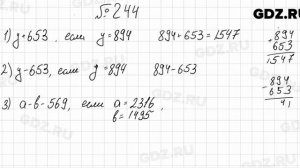 №244
GDZ.RU
1) y+653, если y=894 894+653=1547
+ 894
653
1547
2) y-653, если y=894 894-653
- 894
653
41
3) a-b-569, если a=2316
b=1495,